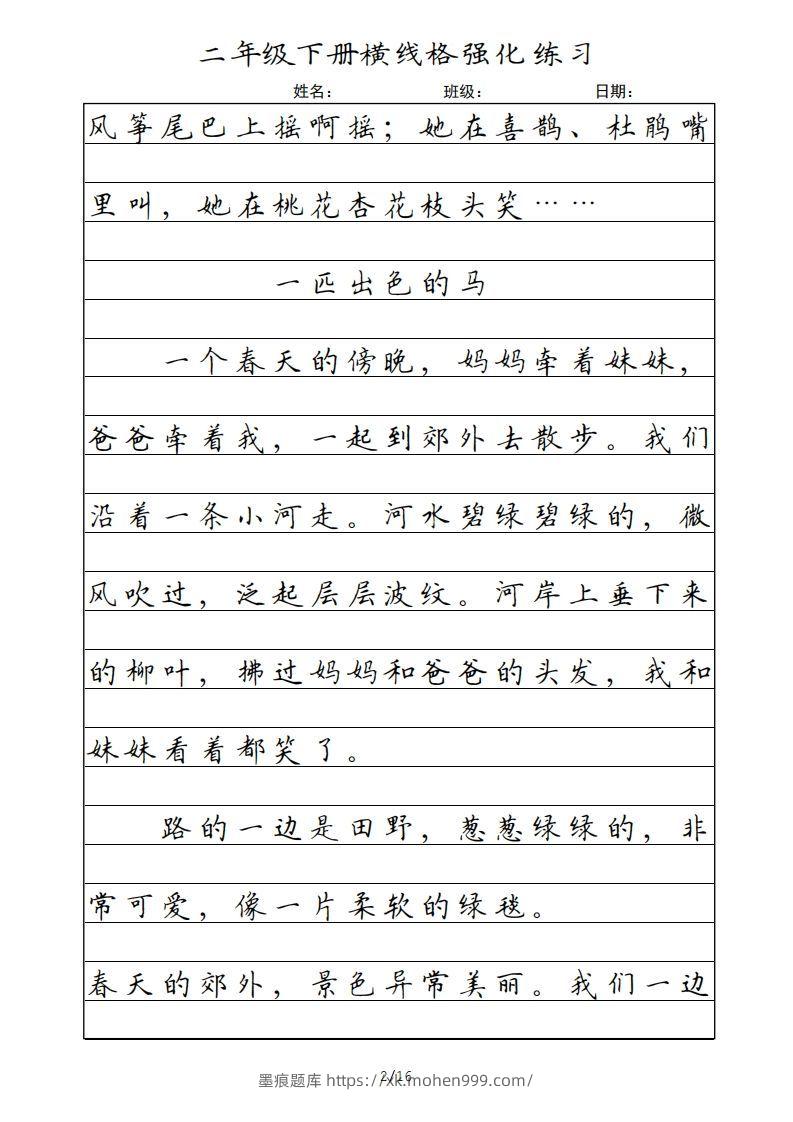 二年级下册横线格强化练习
姓名： 班级： 日期：
风筝尾巴上摇啊摇；她在喜鹊、杜鹃嘴
里叫，她在桃花杏花枝头笑……
一匹出色的马
一个春天的傍晚，妈妈牵着妹妹，
爸爸牵着我，一起到郊外去散步。我们
沿着一条小河走。河水碧绿碧绿的，微
风吹过，泛起层层波纹。河岸上垂下来
的柳叶，拂过妈妈和爸爸的头发，我和
妹妹看着都笑了。
路的一边是田野，葱葱绿绿的，非
常可爱，像一片柔软的绿毯。
春天的郊外，景色异常美丽。我们一边
2/16
墨痕题库 https://xk.mohen999.com/